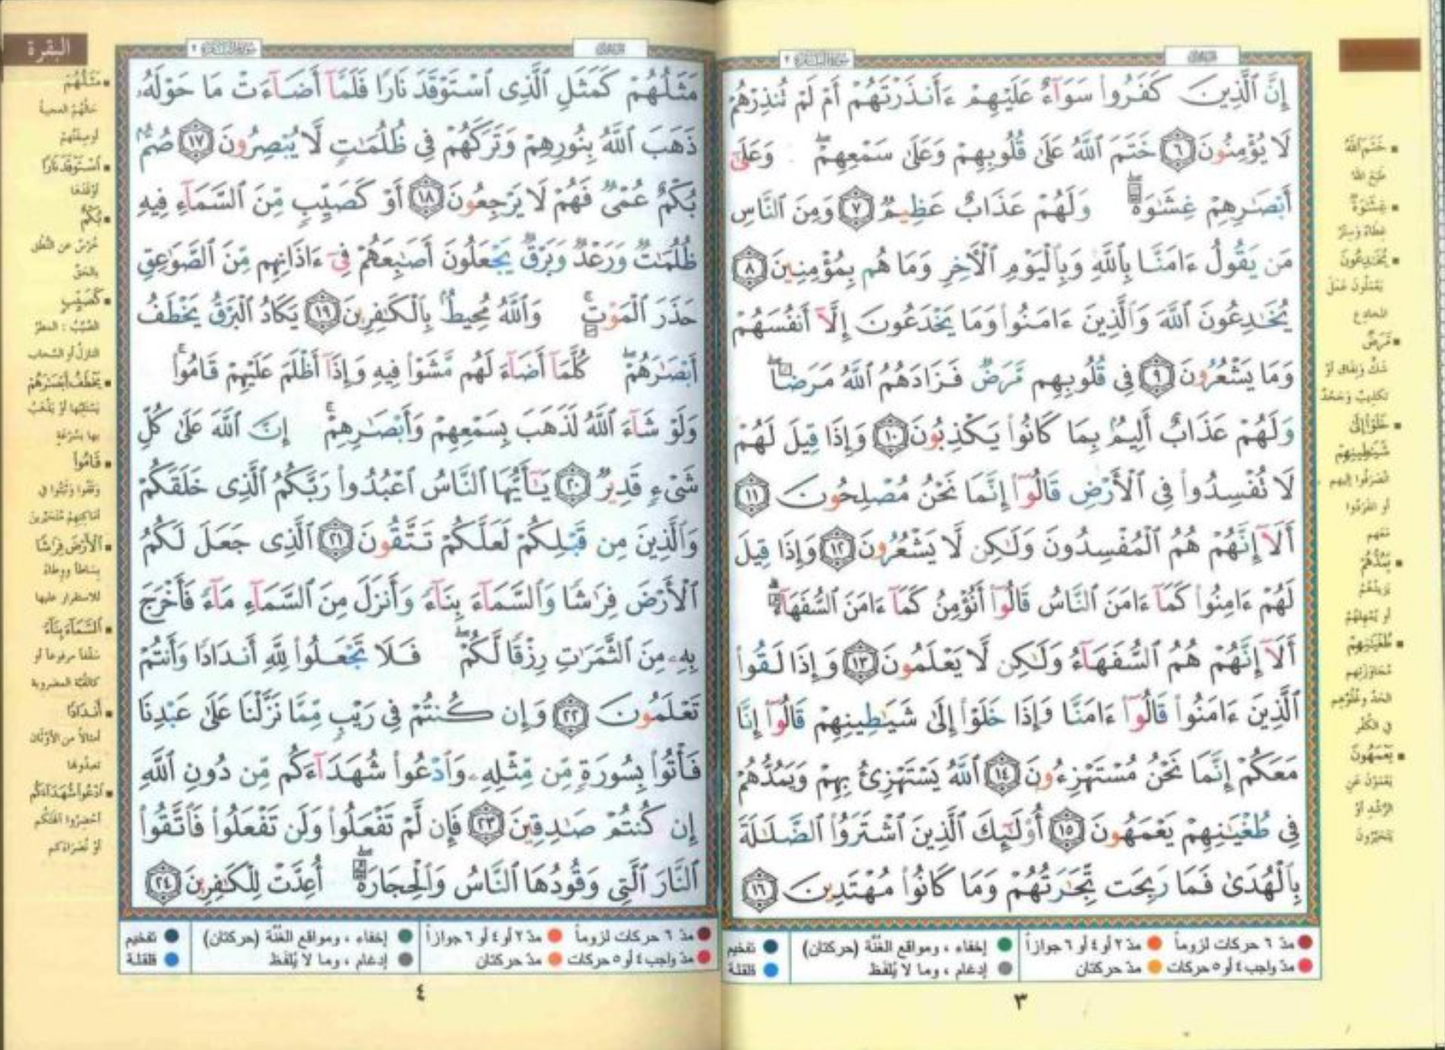 إِنَّ ٱلَّذِينَ كَفَرُوا۟ سَوَآءٌ عَلَيْهِمْ ءَأَنذَرْتَهُمْ أَمْ لَمْ تُنذِرْهُمْ
لَا يُؤْمِنُونَ ٦ خَتَمَ ٱللَّهُ عَلَىٰ قُلُوبِهِمْ وَعَلَىٰ سَمْعِهِمْ ۖ وَعَلَىٰٓ
أَبْصَـٰرِهِمْ غِشَـٰوَةٌ ۖ وَلَهُمْ عَذَابٌ عَظِيمٌ ٧ وَمِنَ ٱلنَّاسِ
مَن يَقُولُ ءَامَنَّا بِٱللَّهِ وَبِٱلْيَوْمِ ٱلْـَٔاخِرِ وَمَا هُم بِمُؤْمِنِينَ ٨
يُخَـٰدِعُونَ ٱللَّهَ وَٱلَّذِينَ ءَامَنُوا۟ وَمَا يَخْدَعُونَ إِلَّآ أَنفُسَهُمْ
وَمَا يَشْعُرُونَ ٩ فِى قُلُوبِهِم مَّرَضٌ فَزَادَهُمُ ٱللَّهُ مَرَضًا ۖ
وَلَهُمْ عَذَابٌ أَلِيمٌۢ بِمَا كَانُوا۟ يَكْذِبُونَ ١٠ وَإِذَا قِيلَ لَهُمْ
لَا تُفْسِدُوا۟ فِى ٱلْأَرْضِ قَالُوٓا۟ إِنَّمَا نَحْنُ مُصْلِحُونَ ١١
أَلَآ إِنَّهُمْ هُمُ ٱلْمُفْسِدُونَ وَلَـٰكِن لَّا يَشْعُرُونَ ١٢ وَإِذَا قِيلَ
لَهُمْ ءَامِنُوا۟ كَمَآ ءَامَنَ ٱلنَّاسُ قَالُوٓا۟ أَنُؤْمِنُ كَمَآ ءَامَنَ ٱلسُّفَهَآءُ ۗ
أَلَآ إِنَّهُمْ هُمُ ٱلسُّفَهَآءُ وَلَـٰكِن لَّا يَعْلَمُونَ ١٣ وَإِذَا لَقُوا۟
ٱلَّذِينَ ءَامَنُوا۟ قَالُوٓا۟ ءَامَنَّا وَإِذَا خَلَوْا۟ إِلَىٰ شَيَـٰطِينِهِمْ قَالُوٓا۟ إِنَّا
مَعَكُمْ إِنَّمَا نَحْنُ مُسْتَهْزِءُونَ ١٤ ٱللَّهُ يَسْتَهْزِئُ بِهِمْ وَيَمُدُّهُمْ
فِى طُغْيَـٰنِهِمْ يَعْمَهُونَ ١٥ أُو۟لَـٰٓئِكَ ٱلَّذِينَ ٱشْتَرَوُا۟ ٱلضَّلَـٰلَةَ
بِٱلْهُدَىٰ فَمَا رَبِحَت تِّجَـٰرَتُهُمْ وَمَا كَانُوا۟ مُهْتَدِينَ ١٦
خَتَمَ ٱللَّهُ
طَبَعَ اللهُ
غِشَـٰوَةٌ
غطاءٌ وسِترٌ
يُخَـٰدِعُونَ
يَعْمَلُونَ عَمَلَ
المُخادِع
مَّرَضٌ
شَكٌّ ونِفاقٌ أَوْ
تكذِيبٌ وجَحْدٌ
خَلَوْا۟ إِلَىٰ
شَيَـٰطِينِهِمْ
انْصَرَفُوا إليهم
أو انْفَرَدُوا
مَعَهم
يَمُدُّهُمْ
يَزِيدُهُمْ
أو يُمْهِلُهُمْ
طُغْيَـٰنِهِمْ
مُجَاوَزَتِهِم
الحَدَّ وغُلُوِّهِم
في الكُفْرِ
يَعْمَهُونَ
يَعْمَوْنَ عَنِ
الرُّشْدِ أوْ
يَتَحَيَّرُونَ
مدّ ٦ حركات لزوماً مدّ ٢ أو ٤ أو ٦ جوازاً إخفاء ، ومواقع الغُنّة (حركتان) تفخيم
مدّ واجب ٤ أو ٥ حركات مدّ حركتان إدغام ، وما لا يُلفَظ قلقلة
٣
البقرة
مَثَلُهُمْ كَمَثَلِ ٱلَّذِى ٱسْتَوْقَدَ نَارًا فَلَمَّآ أَضَآءَتْ مَا حَوْلَهُۥ
ذَهَبَ ٱللَّهُ بِنُورِهِمْ وَتَرَكَهُمْ فِى ظُلُمَـٰتٍ لَّا يُبْصِرُونَ ١٧ صُمٌّۢ
بُكْمٌ عُمْىٌ فَهُمْ لَا يَرْجِعُونَ ١٨ أَوْ كَصَيِّبٍ مِّنَ ٱلسَّمَآءِ فِيهِ
ظُلُمَـٰتٌ وَرَعْدٌ وَبَرْقٌ يَجْعَلُونَ أَصَـٰبِعَهُمْ فِىٓ ءَاذَانِهِم مِّنَ ٱلصَّوَٰعِقِ
حَذَرَ ٱلْمَوْتِ ۚ وَٱللَّهُ مُحِيطٌۢ بِٱلْكَـٰفِرِينَ ١٩ يَكَادُ ٱلْبَرْقُ يَخْطَفُ
أَبْصَـٰرَهُمْ ۖ كُلَّمَآ أَضَآءَ لَهُم مَّشَوْا۟ فِيهِ وَإِذَآ أَظْلَمَ عَلَيْهِمْ قَامُوا۟ ۚ
وَلَوْ شَآءَ ٱللَّهُ لَذَهَبَ بِسَمْعِهِمْ وَأَبْصَـٰرِهِمْ ۚ إِنَّ ٱللَّهَ عَلَىٰ كُلِّ
شَىْءٍ قَدِيرٌ ٢٠ يَـٰٓأَيُّهَا ٱلنَّاسُ ٱعْبُدُوا۟ رَبَّكُمُ ٱلَّذِى خَلَقَكُمْ
وَٱلَّذِينَ مِن قَبْلِكُمْ لَعَلَّكُمْ تَتَّقُونَ ٢١ ٱلَّذِى جَعَلَ لَكُمُ
ٱلْأَرْضَ فِرَٰشًا وَٱلسَّمَآءَ بِنَآءً وَأَنزَلَ مِنَ ٱلسَّمَآءِ مَآءً فَأَخْرَجَ
بِهِۦ مِنَ ٱلثَّمَرَٰتِ رِزْقًا لَّكُمْ ۖ فَلَا تَجْعَلُوا۟ لِلَّهِ أَندَادًا وَأَنتُمْ
تَعْلَمُونَ ٢٢ وَإِن كُنتُمْ فِى رَيْبٍ مِّمَّا نَزَّلْنَا عَلَىٰ عَبْدِنَا
فَأْتُوا۟ بِسُورَةٍ مِّن مِّثْلِهِۦ وَٱدْعُوا۟ شُهَدَآءَكُم مِّن دُونِ ٱللَّهِ
إِن كُنتُمْ صَـٰدِقِينَ ٢٣ فَإِن لَّمْ تَفْعَلُوا۟ وَلَن تَفْعَلُوا۟ فَٱتَّقُوا۟
ٱلنَّارَ ٱلَّتِى وَقُودُهَا ٱلنَّاسُ وَٱلْحِجَارَةُ ۖ أُعِدَّتْ لِلْكَـٰفِرِينَ ٢٤
مَثَلُهُمْ
حالُهُمُ العجيبةُ
أو صِفَتُهمْ
ٱسْتَوْقَدَ نَارًا
أوْقَدَها
بُكْمٌ
خُرْسٌ عن النُّطْقِ
بالحَقِّ
كَصَيِّبٍ
الصَّيِّبُ : المطرُ
النازِلُ أو السَّحاب
يَخْطَفُ أَبْصَـٰرَهُمْ
يَسْتَلِبُها أوْ يَذْهَبُ
بها بسُرْعَةٍ
قَامُوا۟
وَقَفُوا وثَبَتُوا في
أماكِنِهمْ مُتَحَيِّرينَ
ٱلْأَرْضَ فِرَٰشًا
بِساطاً ووِطاءً
للاستقرار عليها
ٱلسَّمَآءَ بِنَآءً
سَقْفاً مرفوعاً أو
كالقُبَّةِ المضروبة
أَندَادًا
أمثالاً من الأوْثان
تعبدُونها
ٱدْعُوا۟ شُهَدَآءَكُم
أحْضِرُوا آلهَتَكُم
أوْ نُصَراءَكم
مدّ ٦ حركات لزوماً مدّ ٢ أو ٤ أو ٦ جوازاً إخفاء ، ومواقع الغُنّة (حركتان) تفخيم
مدّ واجب ٤ أو ٥ حركات مدّ حركتان إدغام ، وما لا يُلفَظ قلقلة
٤